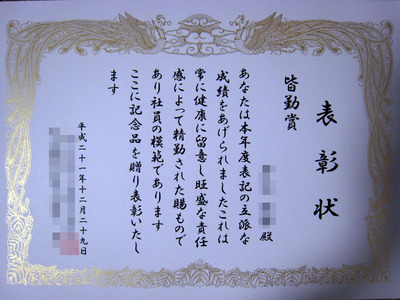 表彰状
皆勤賞
殿
あなたは本年度表記の立派な
成績をあげられましたこれは
常に健康に留意し旺盛な責任
感によって精勤された賜もので
あり社員の模範であります
ここに記念品を贈り表彰いたし
ます
平成二十一年十二月二十九日